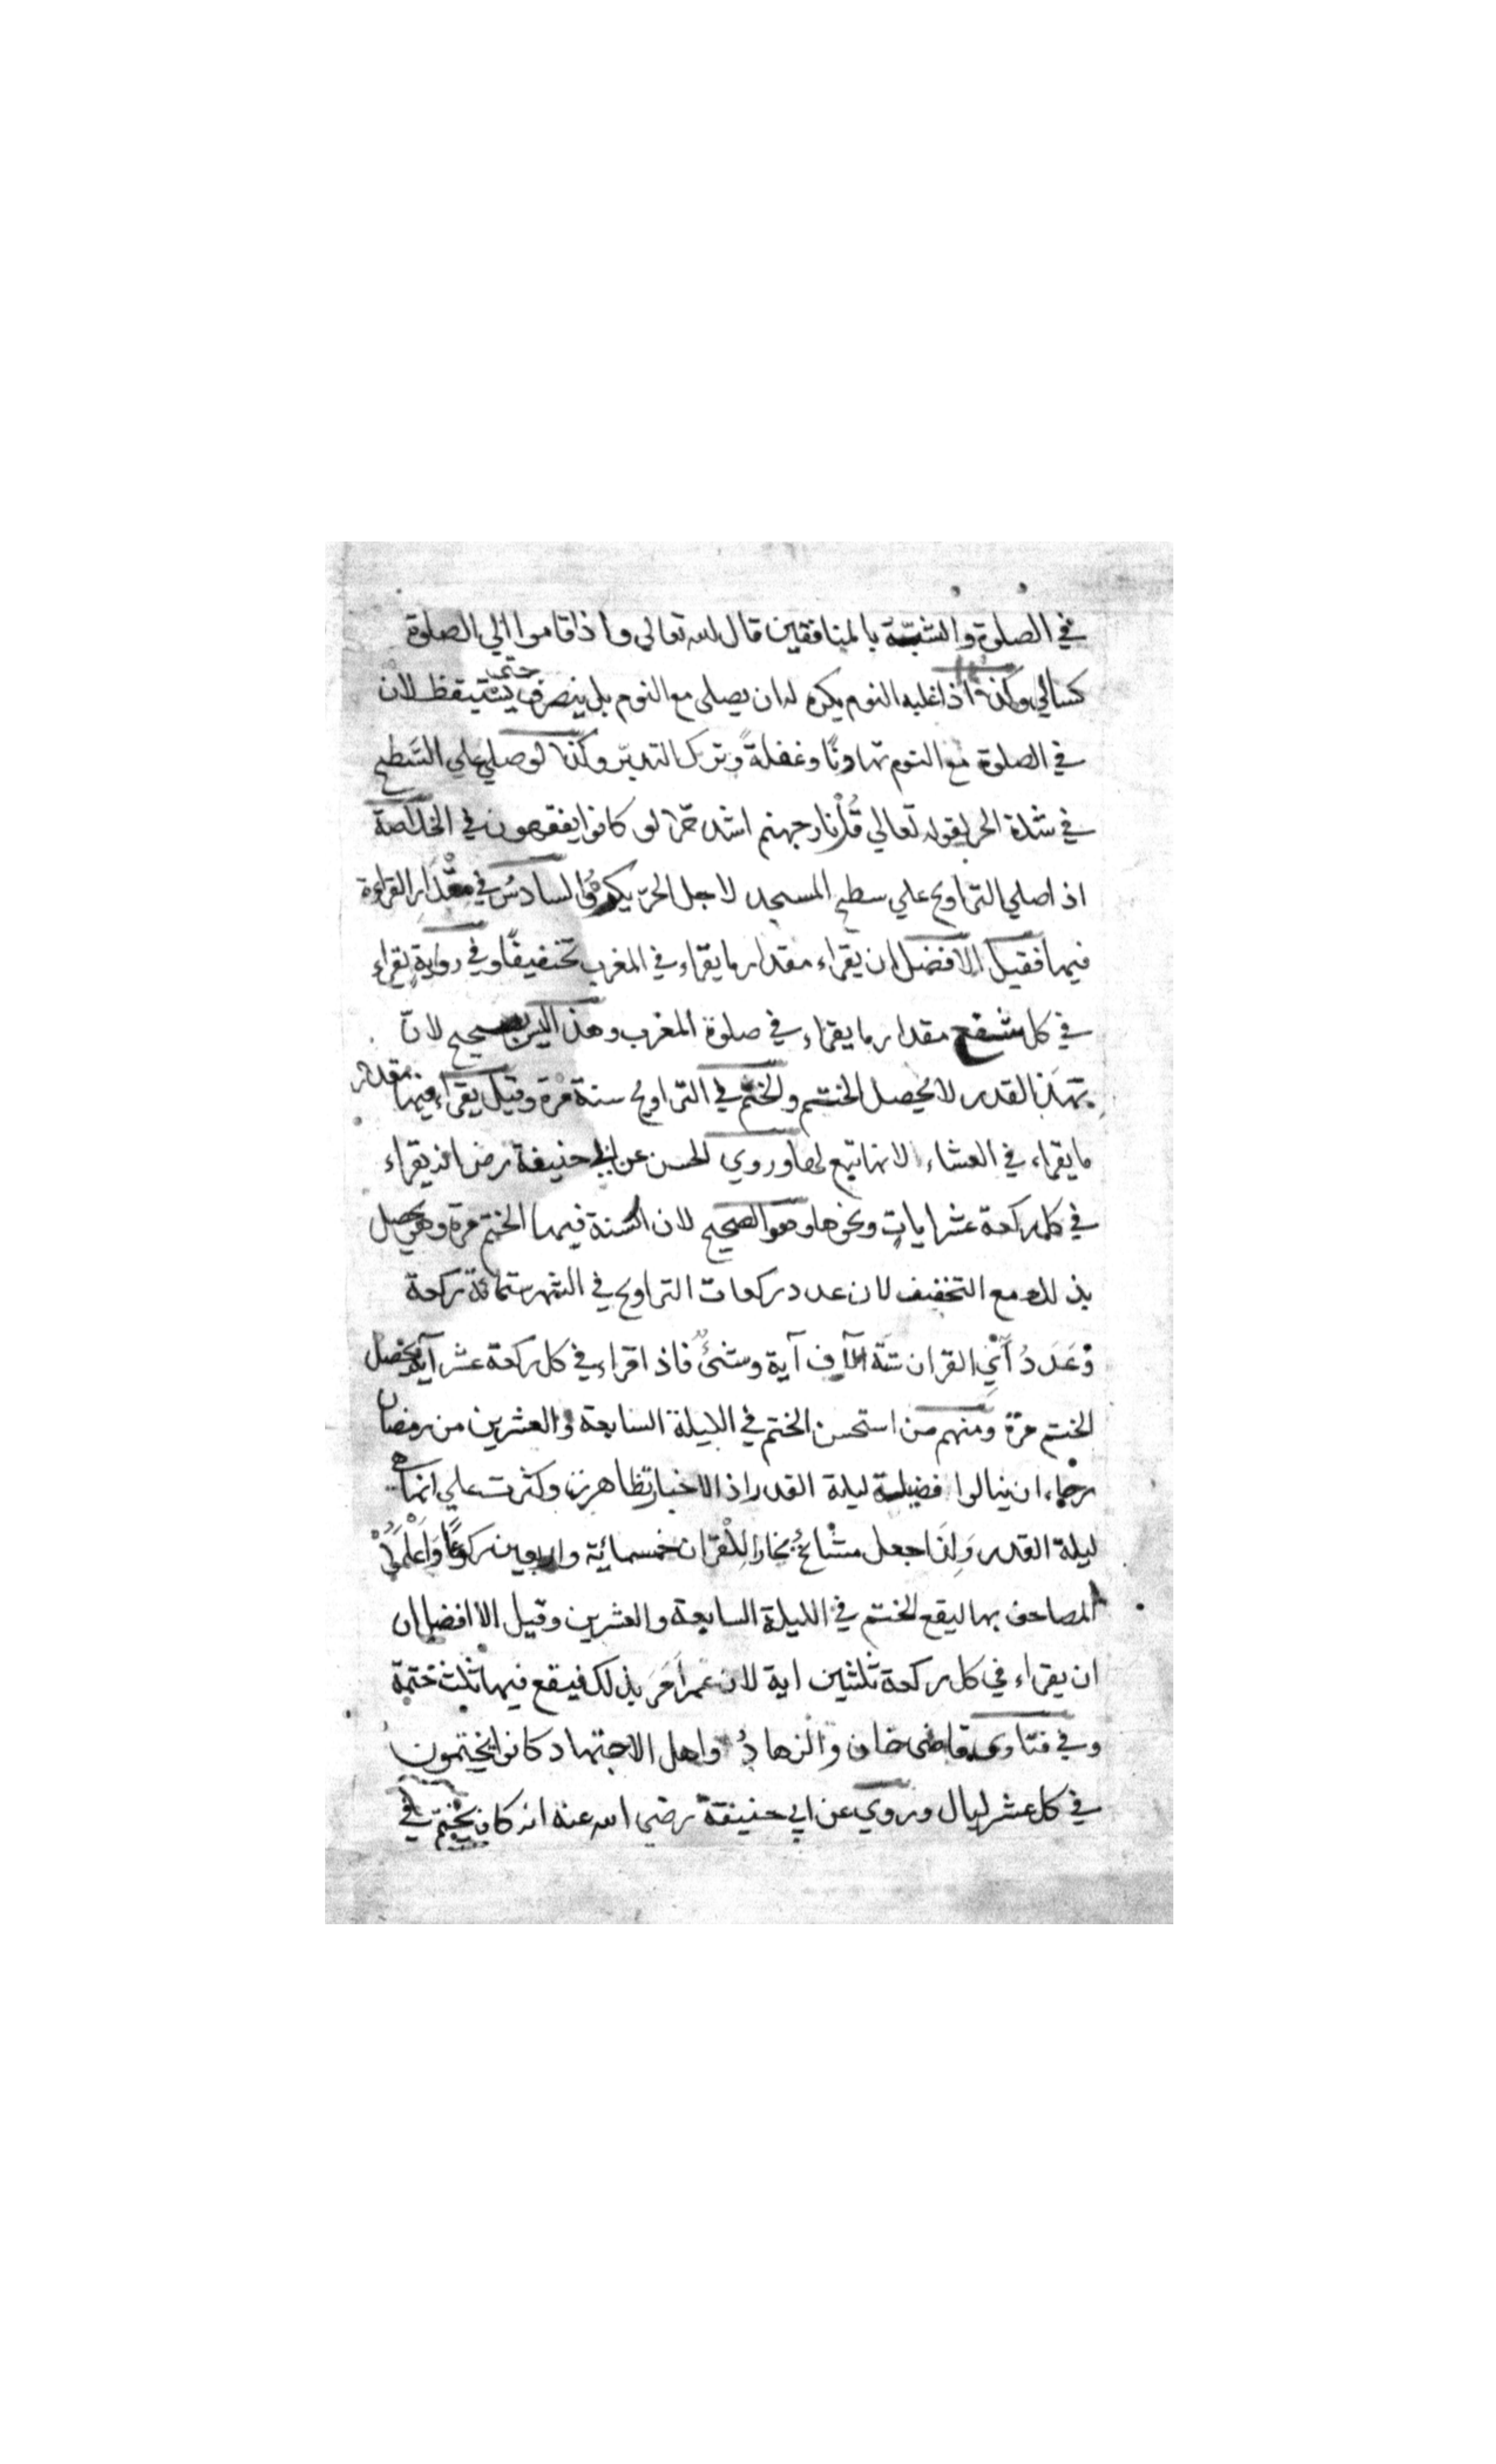 في الصلوة والتشبّه بالمنافقين قال الله تعالي واذا قاموا الي الصلوة
كسالي وكذا اذا غلبه النوم يكره له ان يصلي مع النوم بل ينصرف حتى يستيقظ لان
في الصلوة مع النوم تهاونًا وغفلةً وترك التدبّر وكذا لو صلي علي السَّطح
في شدة الحر لقوله تعالي قُلْ نار جهنم اشد حرّا لو كانوا يفقهون في الخلاصة
اذا صلي التراويح علي سطح المسجد لاجل الحرّ يكره والسادسُ في مِقْدَارِ القراءة
فيها فقيل الافضل ان يقراء مقدار ما يقراء في المغرب تخفيفًا وفي روايةٍ يقراء
في كل شفع مقدار ما يقراء في صلوة المغرب وهذا ليس بصحيح لانّ
بهذا القدر لا يحصل الختم والختم في التراويح سنة مرة وقيل يقراء فيها مقدار
ما يقراء في العشاء لانها تبع لها وروي الحسن عن ابي حنيفة رض انه يقراء
في كل ركعة عشر اياتٍ ونحوها وهو الصحيح لان السنة فيها الختم مرة وهي يحصل
بذلك مع التخفيف لان عدد ركعات التراويح في الشهر ستمائة ركعة
وَعَدَدُ آيِ القران ستّة آلاف آية وشئٌ فاذا قراء في كل ركعة عشر آية يحصل
الختم مرة ومنهم من استحسن الختم في الليلة السابعة والعشرين من رمضان
رجاء ان ينالوا فضيلة ليلة القدر اذ الاخبار تظاهرت وكثرت علي انها هي
ليلة القدر وَلِذَا جعل مشائخُ بخارا للقران خمسمائة واربعين ركوعًا وَاَعْلَمُوْا
المصاحف بها ليقع الختم في الليلة السابعة والعشرين وقيل الافضل ان
ان يقراء في كل ركعة ثلثين اية لان عمر اَمَرَ بذلك فيقع فيها ثلث ختمة
وفي فتاوى قاضي خان والزهادُ واهل الاجتهاد كانوا يختمون
في كل عشر ليال وروي عن ابي حنيفة رضي الله عنه انه كان يختم في